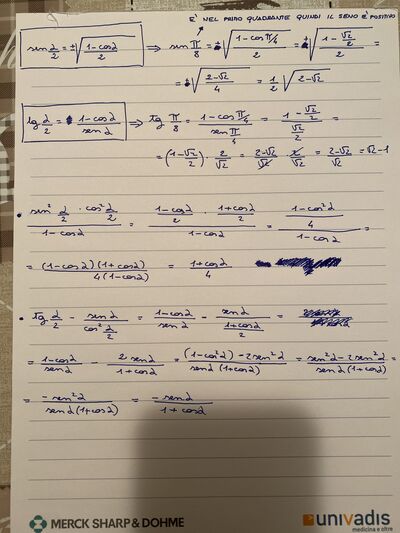 È NEL PRIMO QUADRANTE QUINDI IL SENO È POSITIVO
sen α/2 = ±√((1-cosα)/2) ⇒ sen π/8 = √((1-cos π/4)/2) = √((1-√2/2)/2) =
= √((2-√2)/4) = 1/2 √(2-√2)
tg α/2 = (1-cosα)/senα ⇒ tg π/8 = (1-cos π/4)/(sen π/4) = (1-√2/2)/(√2/2) =
= (1-√2/2) · 2/√2 = (2-√2)/2 · 2/√2 = (2-√2)/√2 = √2-1
• (sen² α/2 · cos² α/2)/(1-cosα) = ((1-cosα)/2 · (1+cosα)/2)/(1-cosα) = ((1-cos²α)/4)/(1-cosα) =
= ((1-cosα)(1+cosα))/(4(1-cosα)) = (1+cosα)/4
• tg α/2 - senα/(cos² α/2) = (1-cosα)/senα - senα/((1+cosα)/2) =
= (1-cosα)/senα - 2senα/(1+cosα) = ((1-cos²α)-2sen²α)/(senα(1+cosα)) = (sen²α-2sen²α)/(senα(1+cosα)) =
= -sen²α/(senα(1+cosα)) = -senα/(1+cosα)
MERCK SHARP & DOHME
univadis
medicina e oltre